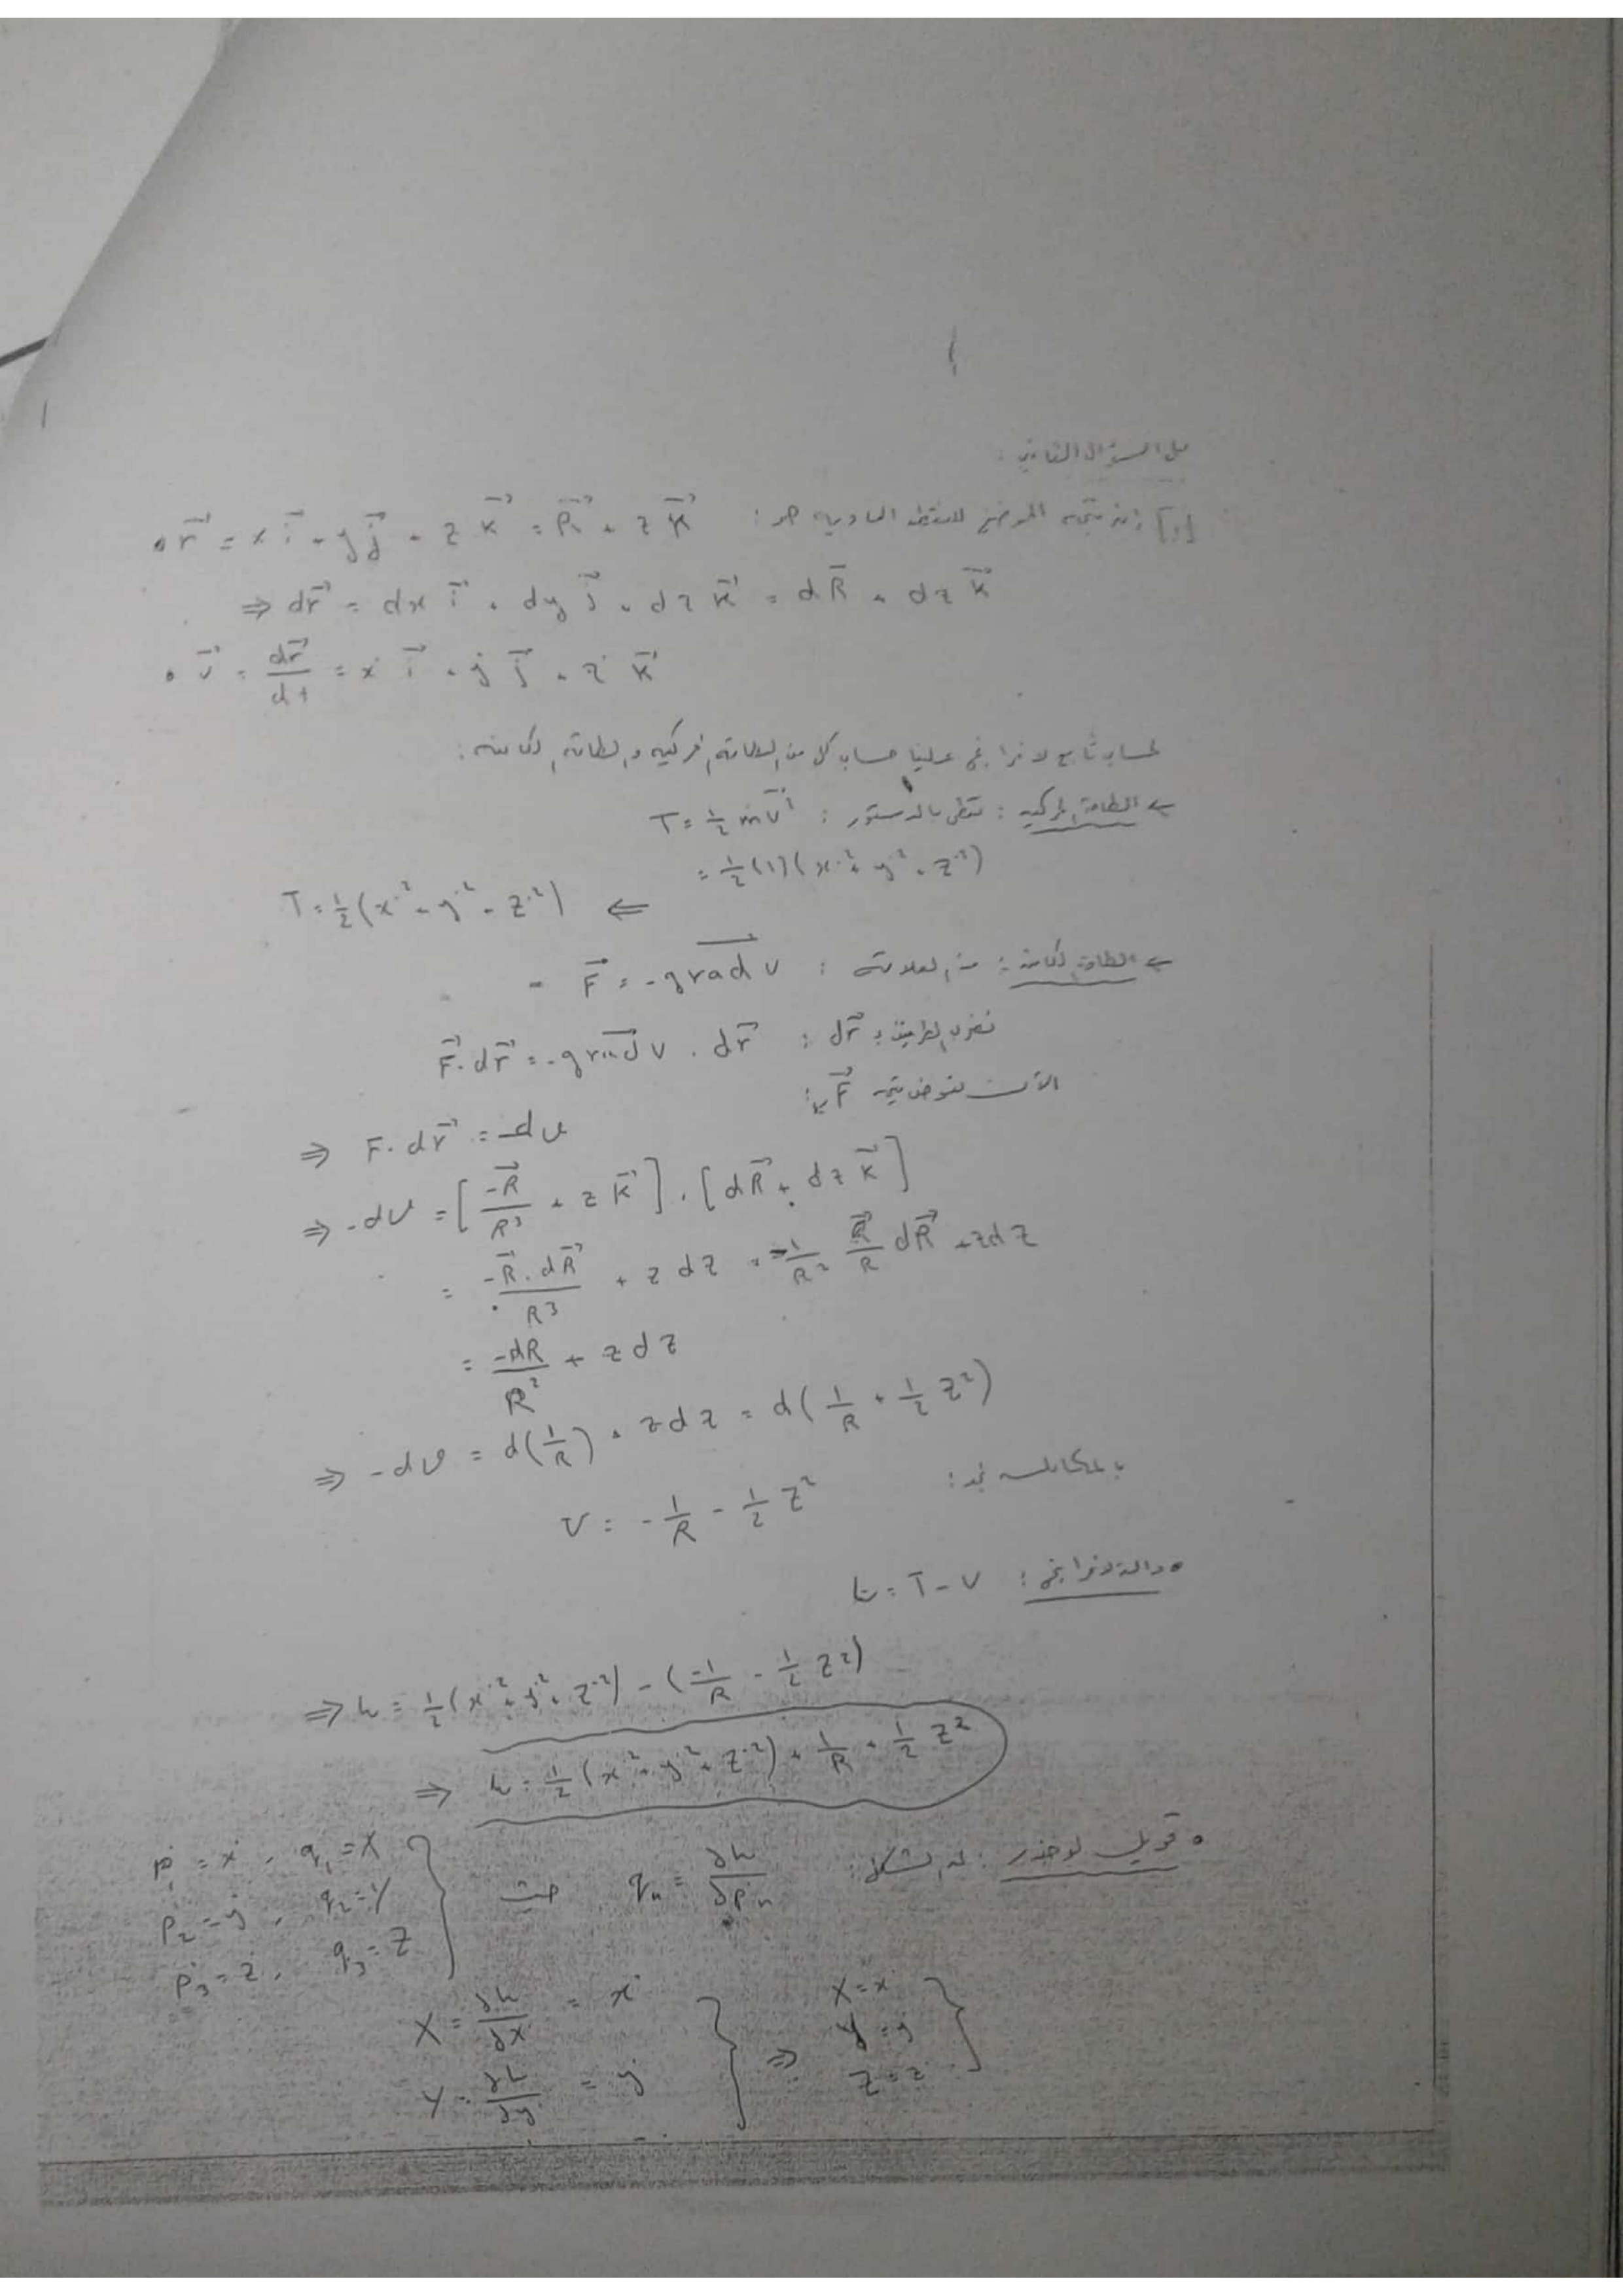 حل السؤال الثاني:
[1] إن متجه الموضع للنقطة المادية هو: • r⃗ = x i⃗ + y j⃗ + z k⃗ = R⃗ + z k⃗
⇒ dr⃗ = dx i⃗ + dy j⃗ + dz k⃗ = dR⃗ + dz k⃗
• v⃗ = dr⃗/dt = ẋ i⃗ + ẏ j⃗ + ż k⃗
لحساب تابع لاغرانج علينا حساب كل من الطاقة الحركية والطاقة الكامنة:
← الطاقة الحركية: تعطى بالدستور: T = 1/2 m v⃗²
= 1/2 (1)(ẋ² + ẏ² + ż²)
⇐ T = 1/2 (ẋ² + ẏ² + ż²)
← الطاقة الكامنة: من العلاقة: F⃗ = - grad V
نضرب الطرفين بـ dr⃗: F⃗ . dr⃗ = - grad V . dr⃗
الآن نعوض F⃗
⇒ F . dr⃗ = -dV
⇒ -dV = [-R⃗/R³ + z k⃗] . [dR⃗ + dz k⃗]
= -R⃗ . dR⃗/R³ + z dz = -1/R² R⃗/R dR⃗ + z dz
= -dR/R² + z dz
⇒ -dV = d(1/R) + z dz = d(1/R + 1/2 z²)
بالمكاملة نجد: V = -1/R - 1/2 z²
• دالة لاغرانج: L = T - V
⇒ L = 1/2 (ẋ² + ẏ² + ż²) - (-1/R - 1/2 z²)
⇒ L = 1/2 (ẋ² + ẏ² + ż²) + 1/R + 1/2 z²
• تحويل لوجندر: له الشكل: qₙ = ∂L/∂ṗₙ حيث ṗ₁ = ẋ , q₁ = X
ṗ₂ = ẏ , q₂ = Y
ṗ₃ = ż , q₃ = Z
X = ∂L/∂ẋ = ẋ
Y = ∂L/∂ẏ = ẏ
⇒ X = ẋ
Y = ẏ
Z = ż